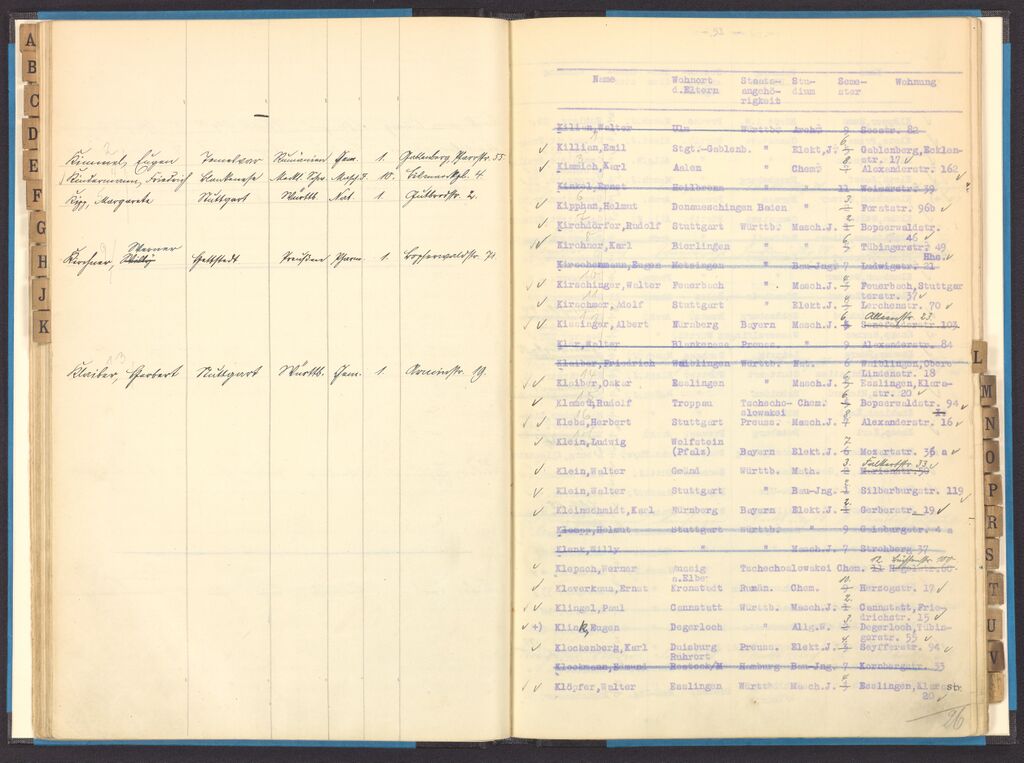 A
B
C
D
E
F
G
H
J
K
Kimmel, Eugen Temesvar Rumänien Chem. 1.
Kindermann, Friedrich Blankenese 10. 4.
Kipp, Margarete Stuttgart Württb. Nat. 1 2.
Werner
Kirchner, Preußen Pharm. 1. Hopferwaldstr. 71
Klaiber, Herbert Stuttgart Württb. Chem. 1. 19.
- 51 -
Name Wohnort Staats- Stu- Seme- Wohnung
d.Eltern angehö- dium ster
rigkeit
Kilian,Walter Ulm Württb. Arch. 9 Seestr. 82
Killian,Emil Stgt.-Gablenb. " Elekt.J. Gablenberg, Ecklen-
str. 17
Kimmich,Karl Aalen " Chem. 8. Alexanderstr. 162
Kinkel,Ernst Heilbronn " 11 Weimarstr. 39
Kipphan,Helmut Donaueschingen Baden " 3. Forststr. 96b
Kirchdörfer,Rudolf Stuttgart Württb. Masch.J. 2. Bopserwaldstr.
46
Kirchner,Karl Bierlingen " " 6. Tübingerstr. 49
Hhs.
Kirschenmann,Eugen Metzingen " Bau-Jng. 7 Ludwigstr. 21
Kirschinger,Walter Feuerbach " Masch.J. Feuerbach,Stuttgar
terstr. 37
Kirschmer,Adolf Stuttgart " Elekt.J. Lerchenstr. 70
6. 23.
Kissinger,Albert Nürnberg Bayern Masch.J. Senefelderstr.103
Klar,Walter Blankenese Preuss. " 9 Alexanderstr. 84
Klaiber,Friedrich Waiblingen Württb. Nat. 6 Waiblingen,Obere
Lindenstr. 18
Klaiber,Oskar Esslingen " Masch.J. Esslingen,Klara-
str. 20
Rudolf Troppau Tschecho- Chem. Bopserwaldstr. 94
slowakei I.
Klebs,Herbert Stuttgart Preuss. Masch.J. 8. Alexanderstr. 16
Klein,Ludwig Wolfstein 7.
(Pfalz) Bayern Elekt.J. 6 Mozartstr. 36 a
3. Falkertstr. 33
Klein,Walter Gmünd Württb. Math. Marienstr.50
Klein,Walter Stuttgart " Bau-Jng. Silberburgstr. 119
Kleinschmidt,Karl Nürnberg Bayern Elekt.J. 2. Gerberstr. 19
Klempp,Helmut Stuttgart Württb. " 9 Gaisburgstr. 4 a
Klenk,Willy " " Masch.J. 7 Strohberg 37
12. 100.
Klepsch,Werner Aussig Tschechoslowakei Chem. 11 Hegelstr.60
a.Elbe
Kleverkaus,Ernst Kronstadt Rumän. Chem. 10. Herzogstr. 17
Klingel,Paul Cannstatt Württb. Masch.J. 2. Cannstatt,Frie-
drichstr. 15
+) Klink,Eugen Degerloch " Allg.W. 3. Degerloch,Tübin-
gerstr. 55
Klockenberg,Karl Duisburg Preuss. Elekt.J. 4. Seyfferstr. 94
Ruhrort
Klockmann,Edmund Rostock/M Hamburg Bau-Jng. 7 Kornbergstr. 33
Klöpfer,Walter Esslingen Württb. Masch.J. Esslingen,Klarastr.
20
26
L
M
N
O
P
R
S
T
U
V